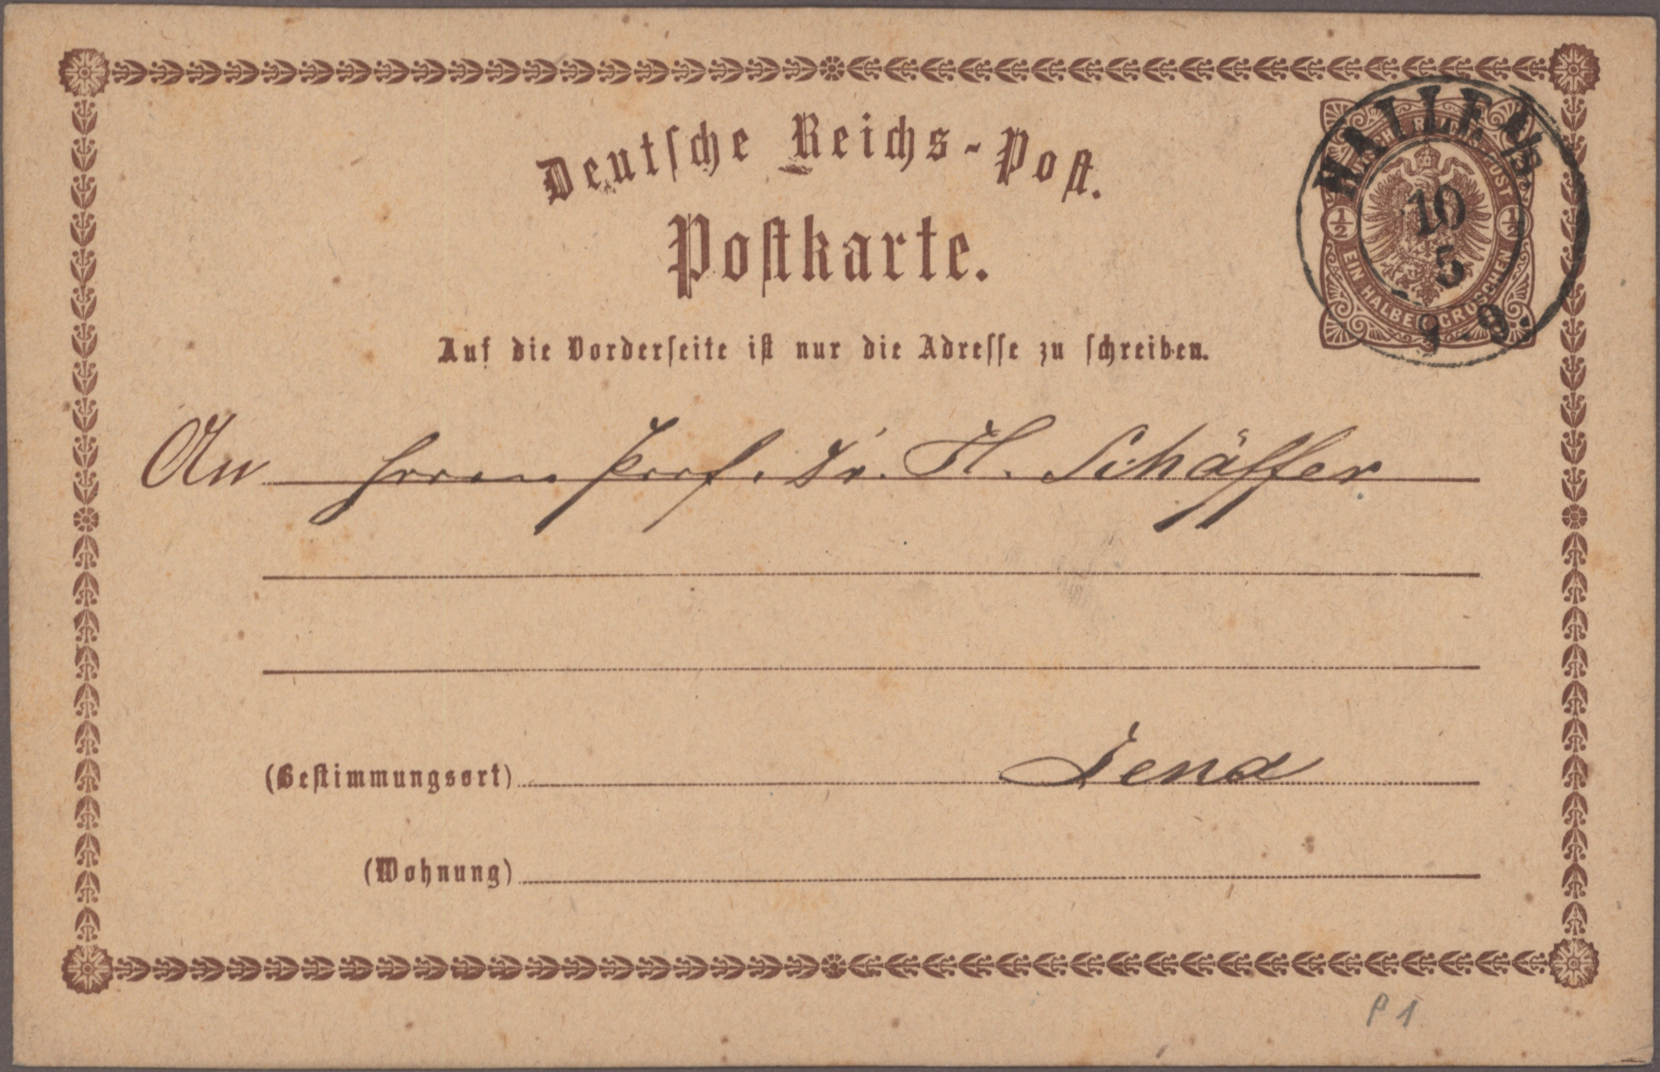 Deutsche Reichs-Post.
Postkarte.
HALLE A/S
10
5
9
½ ½
EIN HALBER GROSCHEN
Auf die Vorderseite ist nur die Adresse zu schreiben.
An Herrn Prof. Dr. H. Schäffer
(Bestimmungsort) Jena
(Wohnung)
P 1